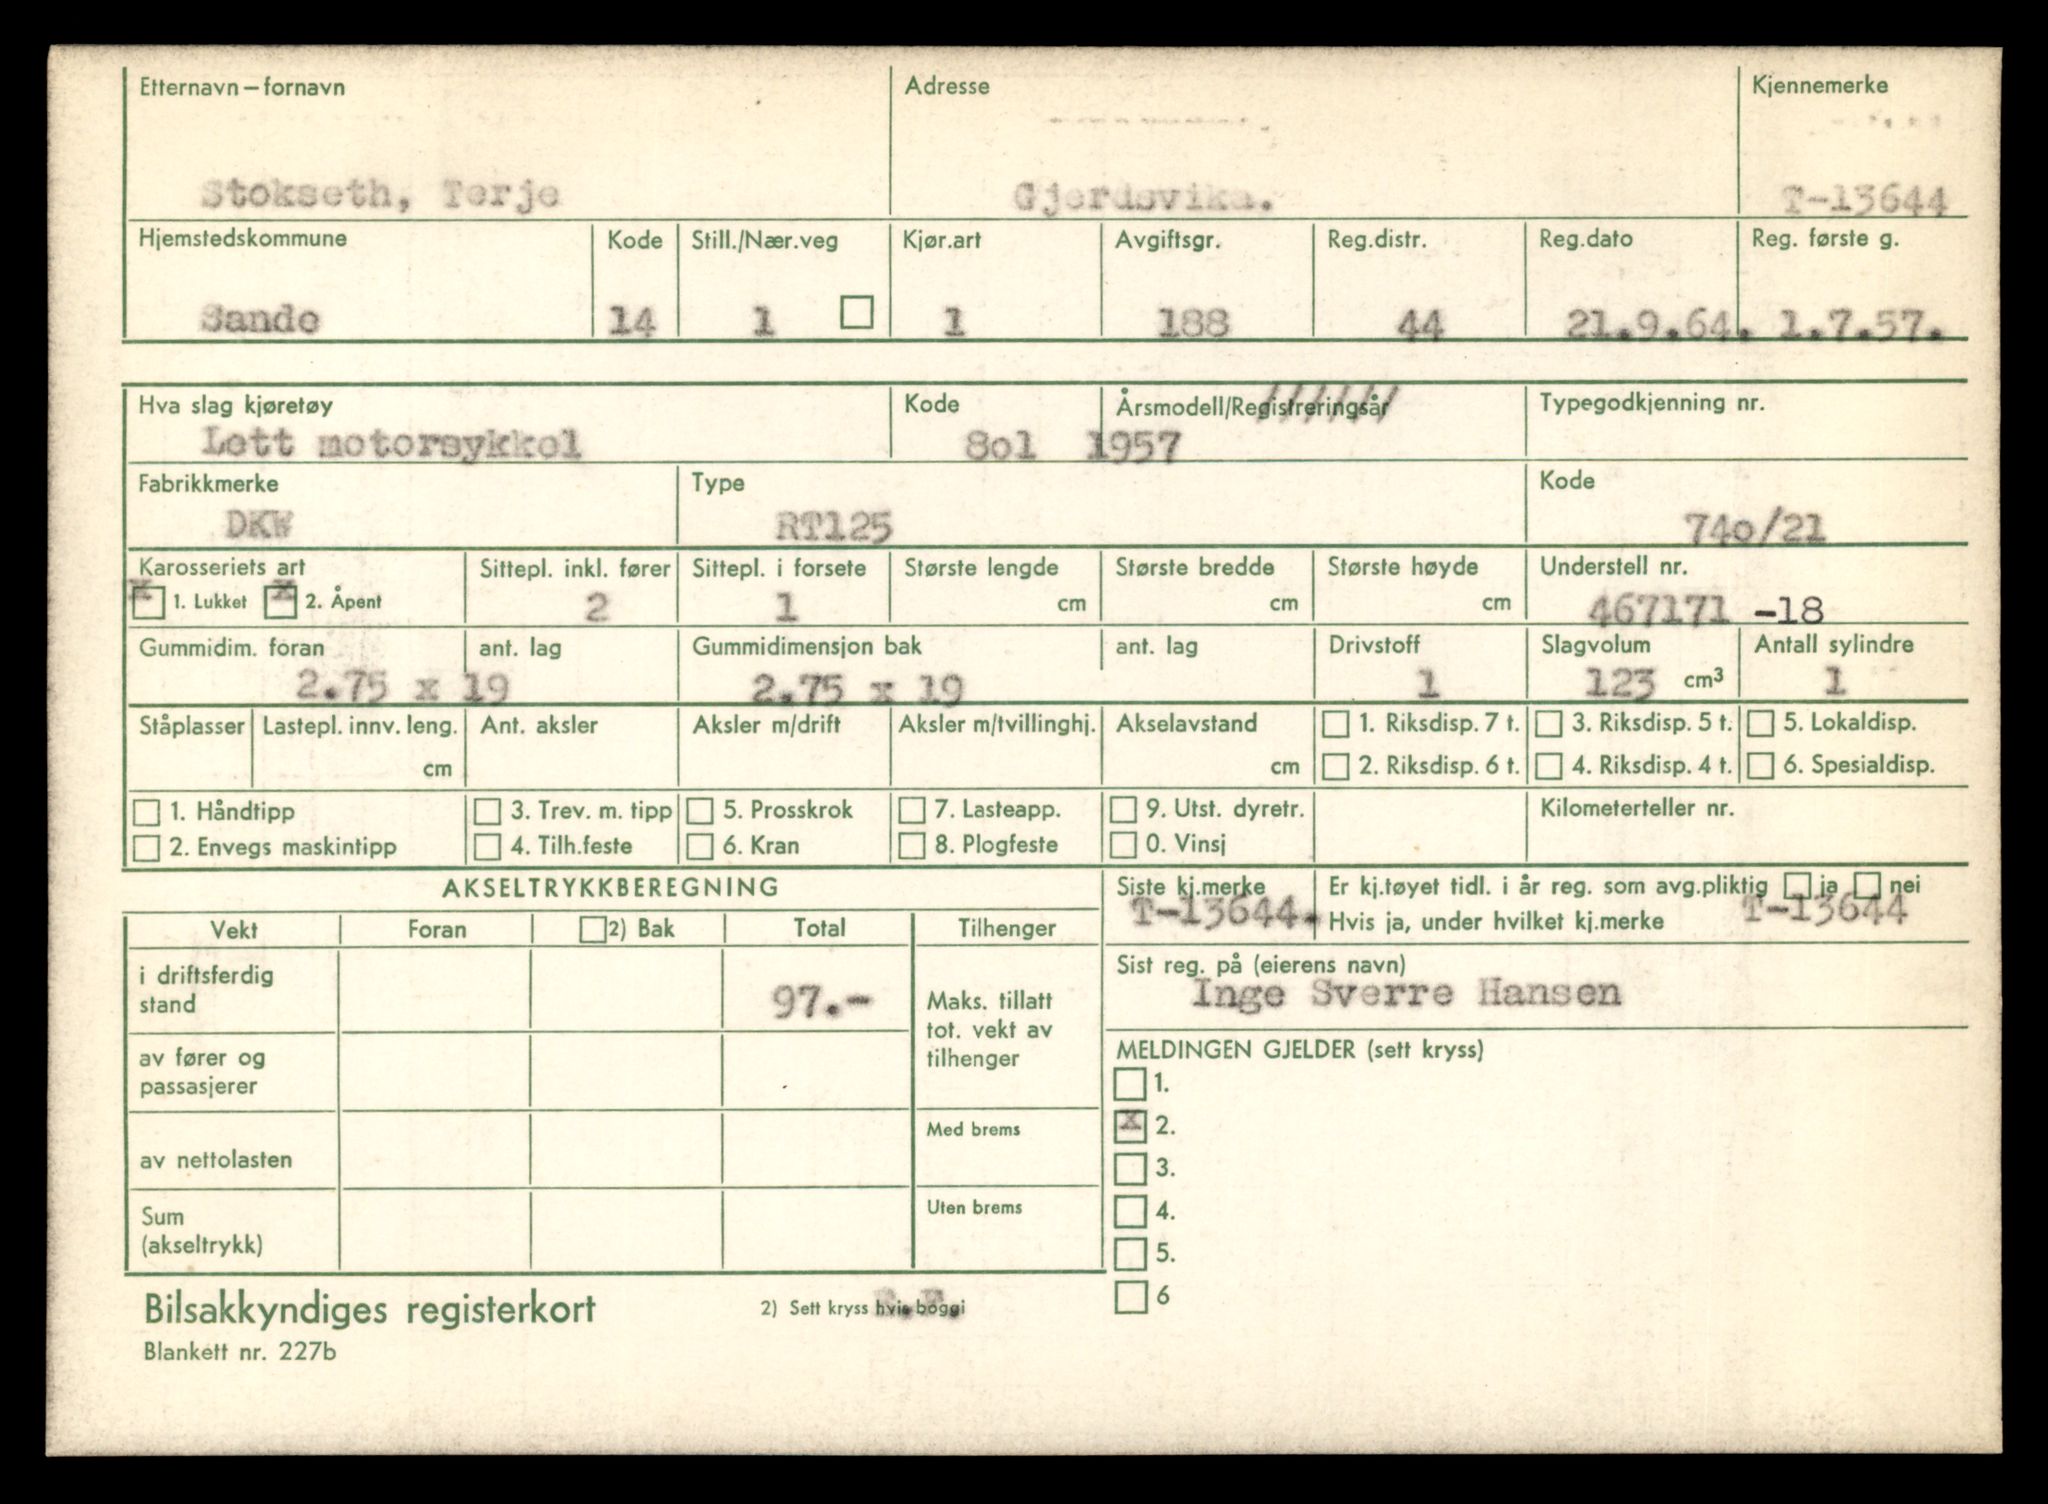 Etternavn – fornavn Adresse Kjennemerke
Stokseth, Terje Gjerdsvika. T-13644
Hjemstedskommune Kode Still./Nær.veg Kjør.art Avgiftsgr. Reg.distr. Reg.dato Reg. første g.
Sande 14 1 1 188 44 21.9.64. 1.7.57.
Hva slag kjøretøy Kode Årsmodell/Registreringsår Typegodkjenning nr.
Lett motorsykkel 8o1 1957
Fabrikkmerke Type Kode
DKW RT125 74o/21
Karosseriets art Sittepl. inkl. fører Sittepl. i forsete Største lengde Største bredde Største høyde Understell nr.
x 1. Lukket x 2. Åpent 2 1 cm cm cm 467171 -18
Gummidim. foran ant. lag Gummidimensjon bak ant. lag Drivstoff Slagvolum Antall sylindre
2.75 x 19 2.75 x 19 1 123 cm³ 1
Ståplasser Lastepl. innv. leng. Ant. aksler Aksler m/drift Aksler m/tvillinghj. Akselavstand 1. Riksdisp. 7 t. 3. Riksdisp. 5 t. 5. Lokaldisp.
cm cm 2. Riksdisp. 6 t. 4. Riksdisp. 4 t. 6. Spesialdisp.
1. Håndtipp 3. Trev. m. tipp 5. Prosskrok 7. Lasteapp. 9. Utst. dyretr. Kilometerteller nr.
2. Envegs maskintipp 4. Tilh.feste 6. Kran 8. Plogfeste 0. Vinsj
AKSELTRYKKBEREGNING Siste kj.merke Er kj.tøyet tidl. i år reg. som avg.pliktig ja nei
T-13644. Hvis ja, under hvilket kj.merke T-13644
Vekt Foran 2) Bak Total Tilhenger
Sist reg. på (eierens navn)
Inge Sverre Hansen
i driftsferdig
stand 97.-
Maks. tillatt
tot. vekt av
tilhenger
av fører og
passasjerer
MELDINGEN GJELDER (sett kryss)
1.
x 2.
Med brems
av nettolasten
3.
Uten brems
4.
Sum
(akseltrykk)
5.
6
Bilsakkyndiges registerkort 2) Sett kryss hvis boggi
Blankett nr. 227b